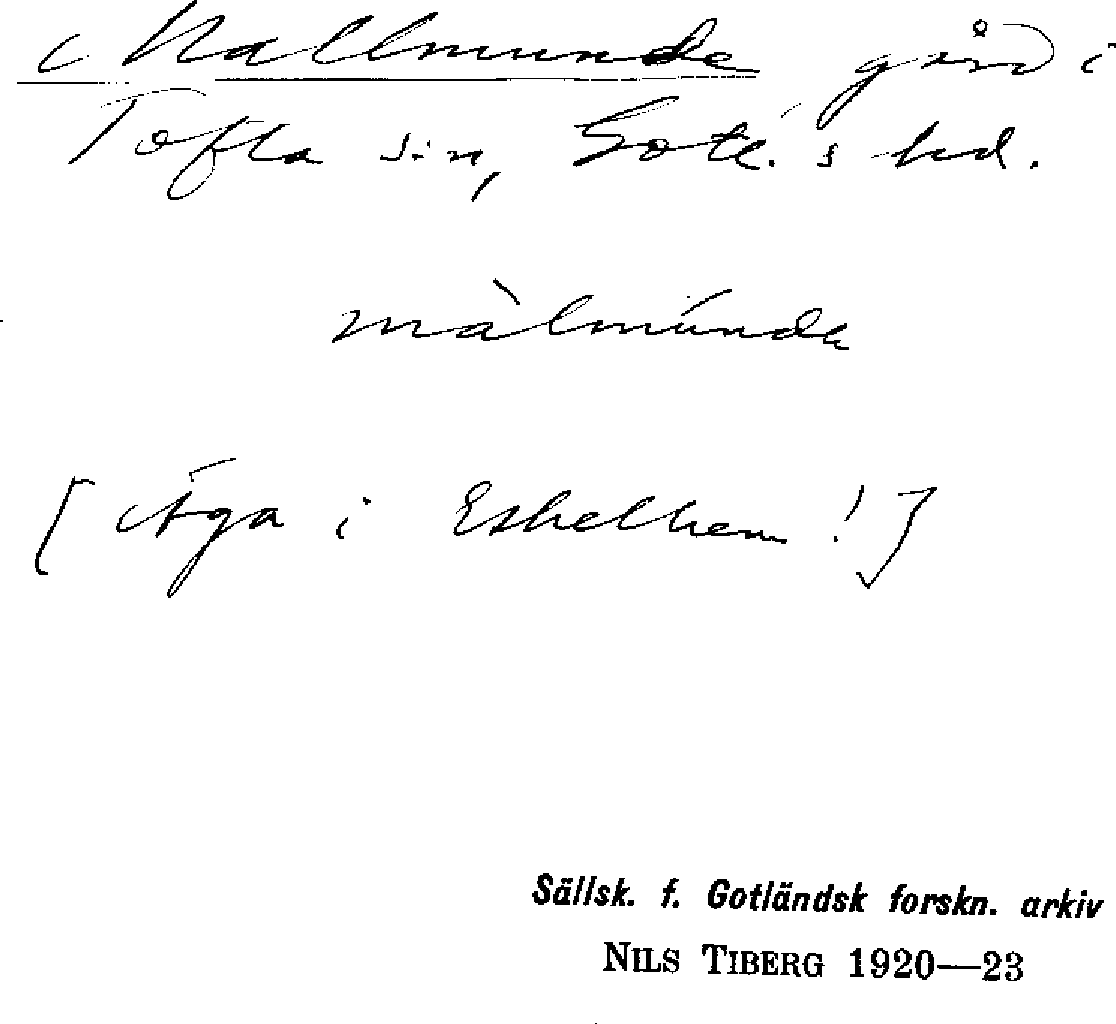 Mallmunde gård i
Tofta s:n, Gotl. s hd.
màlmúnde
[Äga i Eskelhem !]
Sällsk. f. Gotländsk forskn. arkiv
NILS TIBERG 1920—23